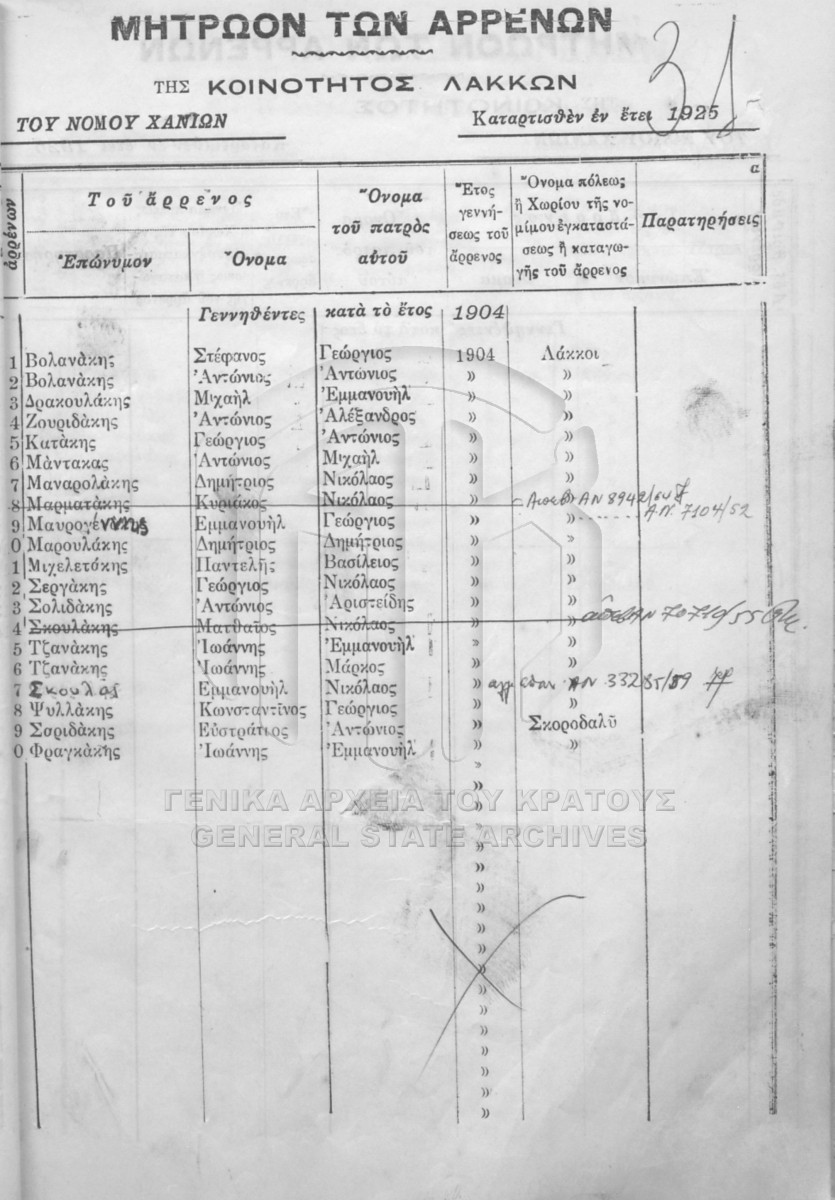 ΜΗΤΡΩΟΝ ΤΩΝ ΑΡΡΕΝΩΝ
31
ΤΗΣ ΚΟΙΝΟΤΗΤΟΣ ΛΑΚΚΩΝ
ΤΟΥ ΝΟΜΟΥ ΧΑΝΙΩΝ Καταρτισθὲν ἐν ἔτει 1925
ἀρρένων Τοῦ ἄρρενος Ἐπώνυμον Ὄνομα Ὄνομα τοῦ πατρὸς αὐτοῦ Ἔτος γεννή-σεως τοῦ ἄρρενος Ὄνομα πόλεως ἢ Χωρίου τῆς νο-μίμου ἐγκαταστά-σεως ἢ καταγω-γῆς τοῦ ἄρρενος Παρατηρήσεις α
Γεννηθέντες κατὰ τὸ ἔτος 1904
1 Βολανάκης Στέφανος Γεώργιος 1904 Λάκκοι
2 Βολανάκης Ἀντώνιος Ἀντώνιος » »
3 Δρακουλάκης Μιχαὴλ Ἐμμανουὴλ » »
4 Ζουριδάκης Ἀντώνιος Ἀλέξανδρος » »
5 Κατάκης Γεώργιος Ἀντώνιος » »
6 Μάντακας Ἀντώνιος Μιχαὴλ » »
7 Μαναρολάκης Δημήτριος Νικόλαος » »
8 Μαρματάκης Κυριάκος Νικόλαος » ΑΝ 8942
9 Μαυρογέννης Εμμανουὴλ Γεώργιος » » Α.Ν. 7104/52
0 Μαρουλάκης Δημήτριος Δημήτριος » »
1 Μιχελετάκης Παντελῆς Βασίλειος » »
2 Σεργάκης Γεώργιος Νικόλαος » »
3 Σολιδάκης Ἀντώνιος Ἀριστείδης » »
4 Σκουλάκης Ματθαῖος Νικόλαος » » ΑΝ 70710/55
5 Τζανάκης Ἰωάννης Ἐμμανουὴλ » »
6 Τζανάκης Ἰωάννης Μάρκος » »
7 Σκουλάς Εμμανουὴλ Νικόλαος » ΑΝ 33285/59
8 Ψυλλάκης Κωνσταντῖνος Γεώργιος » »
9 Σσριδάκης Εὐστράτιος Ἀντώνιος » Σκοροδαλῦ
0 Φραγκάκης Ἰωάννης Ἐμμανουὴλ » »
»
»
»
ΓΕΝΙΚΑ ΑΡΧΕΙΑ ΤΟΥ ΚΡΑΤΟΥΣ
»
GENERAL STATE ARCHIVES
»
»
»
»
»
»
»
»
»
»
»
»
»
»